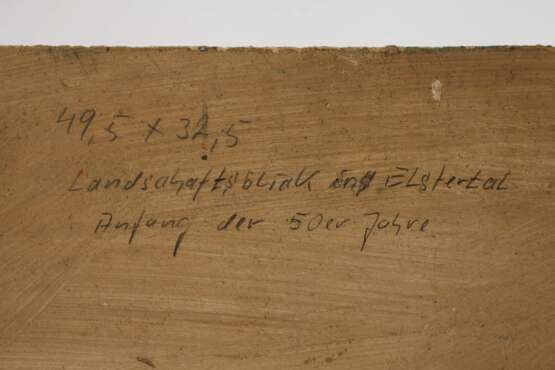 49,5 x 32,5
Landschaftsblick ins Elstertal
Anfang der 50er Jahre